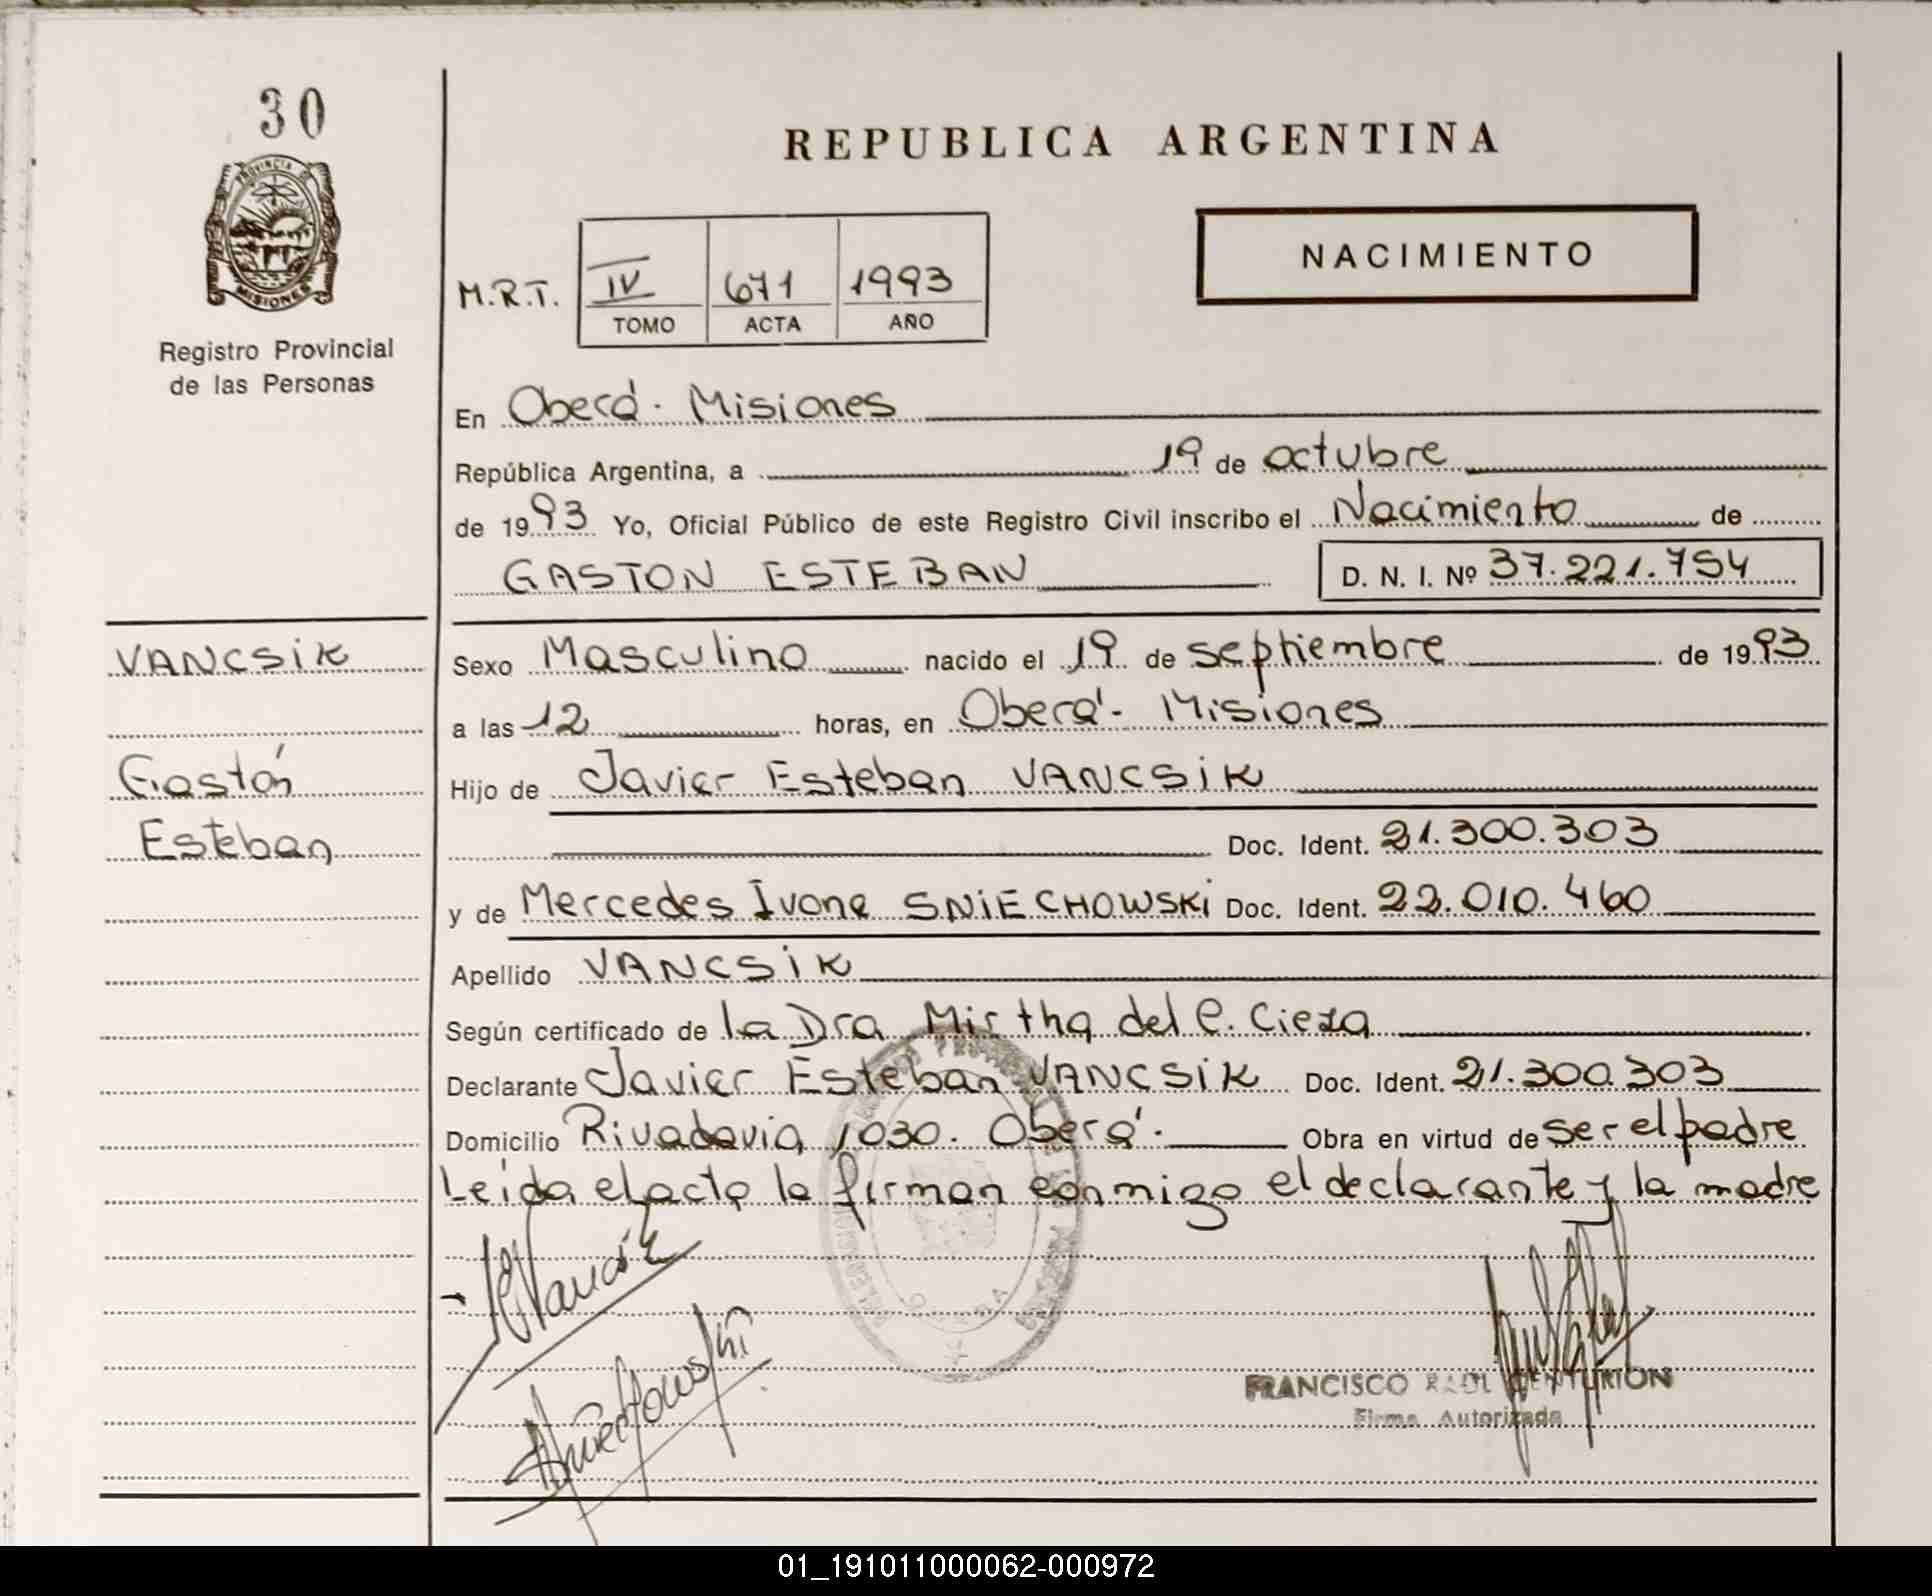 30
PROVINCIA DE
MISIONES
Registro Provincial
de las Personas
REPUBLICA ARGENTINA
NACIMIENTO
M.R.T. IV 671 1993
TOMO ACTA AÑO
En Oberá - Misiones
República Argentina, a 19 de octubre
de 1993 Yo, Oficial Público de este Registro Civil inscribo el Nacimiento de
GASTON ESTEBAN D. N. I. Nº 37.221.754
VANCSIK
Gastón
Esteban
Sexo Masculino nacido el 19 de septiembre de 1993
a las 12 horas, en Oberá - Misiones
Hijo de Javier Esteban VANCSIK
Doc. Ident. 21.300.303
y de Mercedes Ivone SNIECHOWSKI Doc. Ident. 22.010.460
Apellido VANCSIK
Según certificado de la Dra Mirtha del C. Cieza
Declarante Javier Esteban VANCSIK Doc. Ident. 21.300.303
Domicilio Rivadavia 1030. Oberá. Obra en virtud de ser el padre
Leida el acta la firman conmigo el declarante y la madre
FRANCISCO RAUL CENTURION
Firma Autorizada
01_191011000062-000972